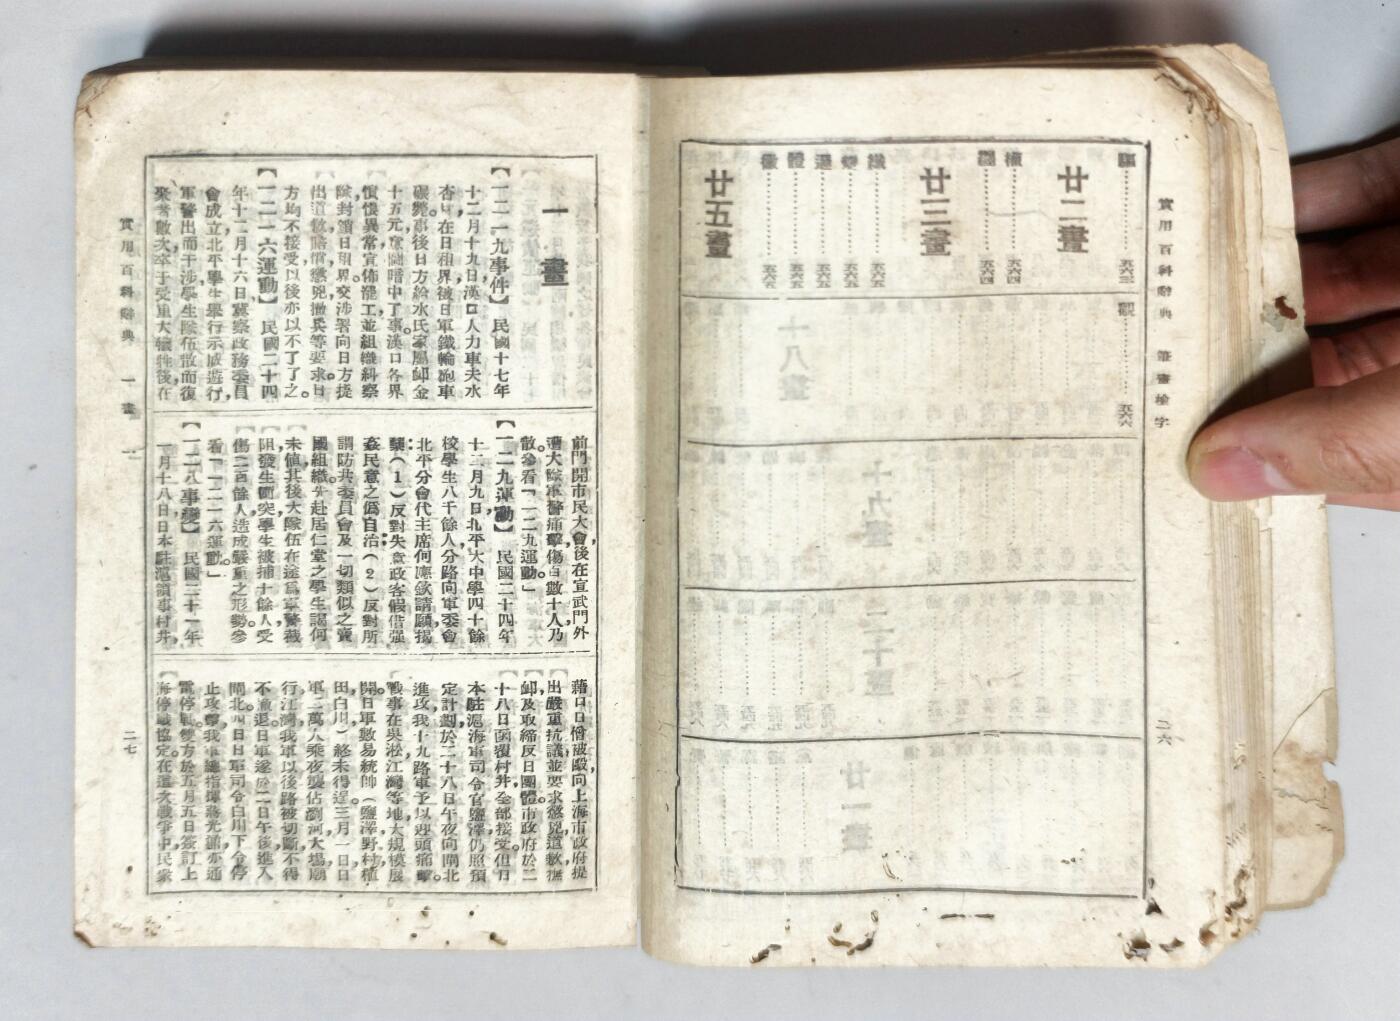 實用百科辭典 筆畫檢字 二六
廿二畫
五六三
五六四
五六四
廿三畫
織 五六五
變 五六五
邏 五六五
體 五六五
黴 五六五
廿五畫
觀 五六六
一畫
【一二一九事件】 民國十七年
十二月十九日,漢口人力車夫水
杏林在日租界被日軍鐵輪砲車
碾斃。事後日方給水氏家屬卹金
十五元,意圖暗中了事。漢口各界
憤慨異常,宣佈罷工,並組織糾察
隊封鎖日租界。交涉署向日方提
出道歉賠償懲兇撤兵等要求,日
方均不接受,以後亦以不了了之。
【一二一六運動】 民國二十四
年十二月十六日,冀察政務委員
會成立,北平學生舉行示威遊行,
軍警出而干涉,學生隊伍散而復
聚者數次,卒于受重大犧牲後,在
前門開市民大會,後在宣武門外
遭大隊軍警痛擊,傷百數十人,乃
散。參看「一二九運動」
【一二九運動】 民國二十四年
十二月九日,北平大中學四十餘
校學生八千餘人,分路向軍委會
北平分會代主席何應欽請願,揚
檗:(1)反對失意政客假借强
姦民意之僞自治;(2)反對所
謂防共委員會及一切類似之賣
國組織。先赴居仁堂之學生謁何
未値,其後大隊伍在途爲軍警截
阻,發生衝突,學生被捕十餘人,受
傷二百餘人,造成嚴重之形勢。參
看「一二一六運動」
【一二八事變】 民國二十一年
一月十八日,日本駐滬領事村井,
藉口日僧被毆,向上海市政府提
出嚴重抗議,並要求懲兇道歉,撫
卹,及取締反日團體。市政府於二
十八日函覆村井,全部接受。但日
本駐滬海軍司令官鹽澤仍照預
定計劃於二十八日午夜向閘北
進攻,我十九路軍予以迎頭痛擊。
戰事在吳淞江灣等地大規模展
開。日軍數易統帥(鹽澤野村植
田白川)終未得逞。三月一日,日
軍二萬人乘夜襲佔瀏河大場廟
行江灣,我軍以後路被切斷,不得
不撤退,日軍遂於二日午後進入
閘北。四日,日軍司令白川下令停
止攻擊,我軍總指揮蔣光鼐亦通
電停戰。雙方於五月五日簽訂上
海停戰協定。在這次戰爭中,民衆
實用百科辭典 一畫 一 二七